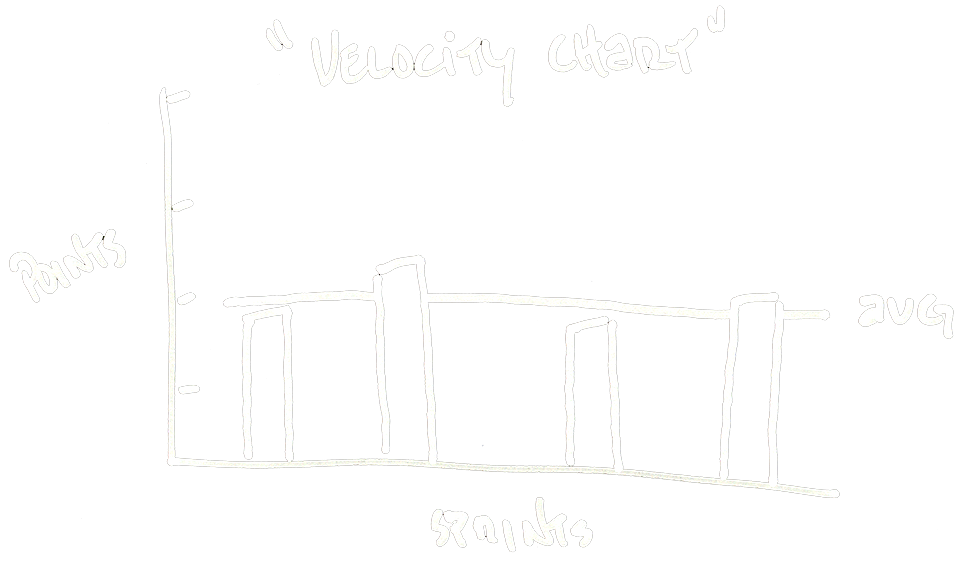 "VELOCITY CHART"
POINTS
AVG
SPRINTS